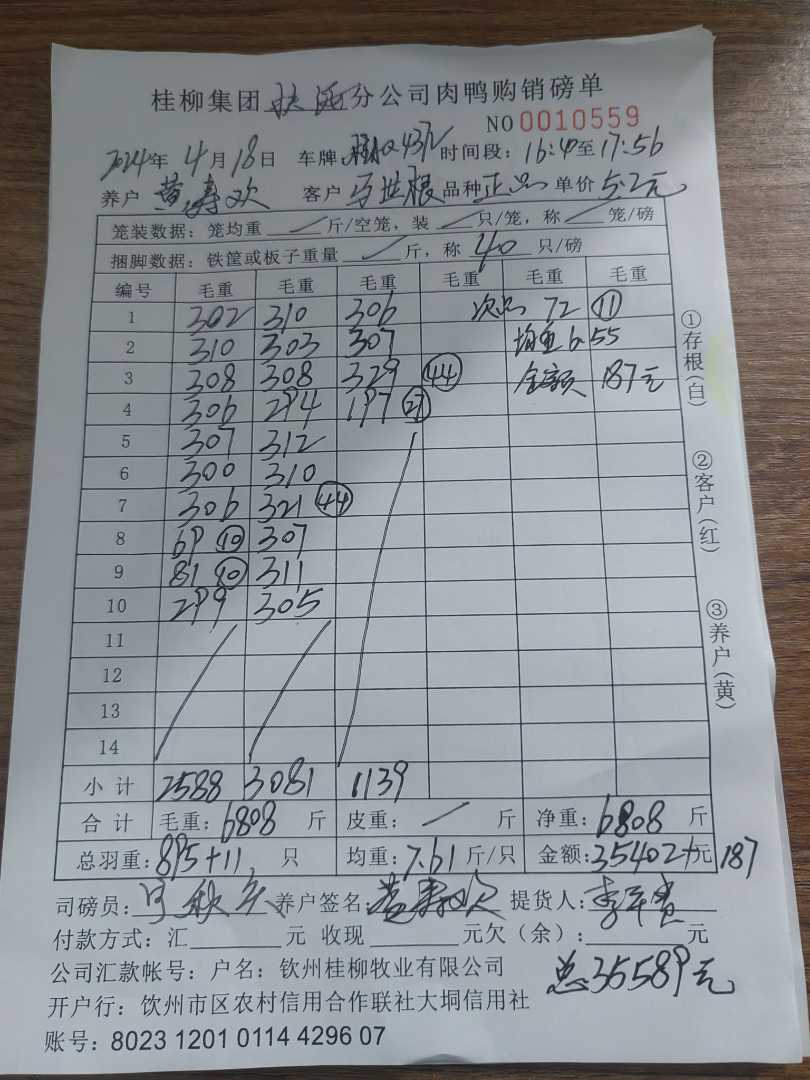 桂柳集团 分公司肉鸭购销磅单
NO 0010559
2024年 4月18日 车牌: 时间段: 16:40至17:56
养户 黄寿欢 客户 马世根 品种 正品 单价 5.2元
笼装数据: 笼均重 / 斤/空笼, 装 / 只/笼, 称 / 笼/磅
捆脚数据: 铁筐或板子重量 / 斤, 称 40 只/磅
编号 毛重 毛重 毛重 毛重 毛重 毛重
1 302 310 306 次品 72 ⑪
2 310 303 307 均重 6.55
3 308 308 329 ㊹ 金额 187元
4 306 294 197 ㉗
5 307 312
6 300 310
7 306 321 ㊹
8 69 ⑩ 307
9 81 ⑩ 311
10 299 305
11
12
13
14
小计 2588 3081 1139
合计 毛重: 6808 斤 皮重: / 斤 净重: 6808 斤
总羽重: 895+11 只 均重: 7.61 斤/只 金额: 35402+元 187
司磅员: 养户签名: 黄寿欢 提货人:
付款方式: 汇 元 收现 元欠(余): 元
公司汇款帐号: 户名: 钦州桂柳牧业有限公司
总35589元
开户行: 饮州市区农村信用合作联社大垌信用社
账号: 8023 1201 0114 4296 07
①存根(白)
②客户(红)
③养户(黄)